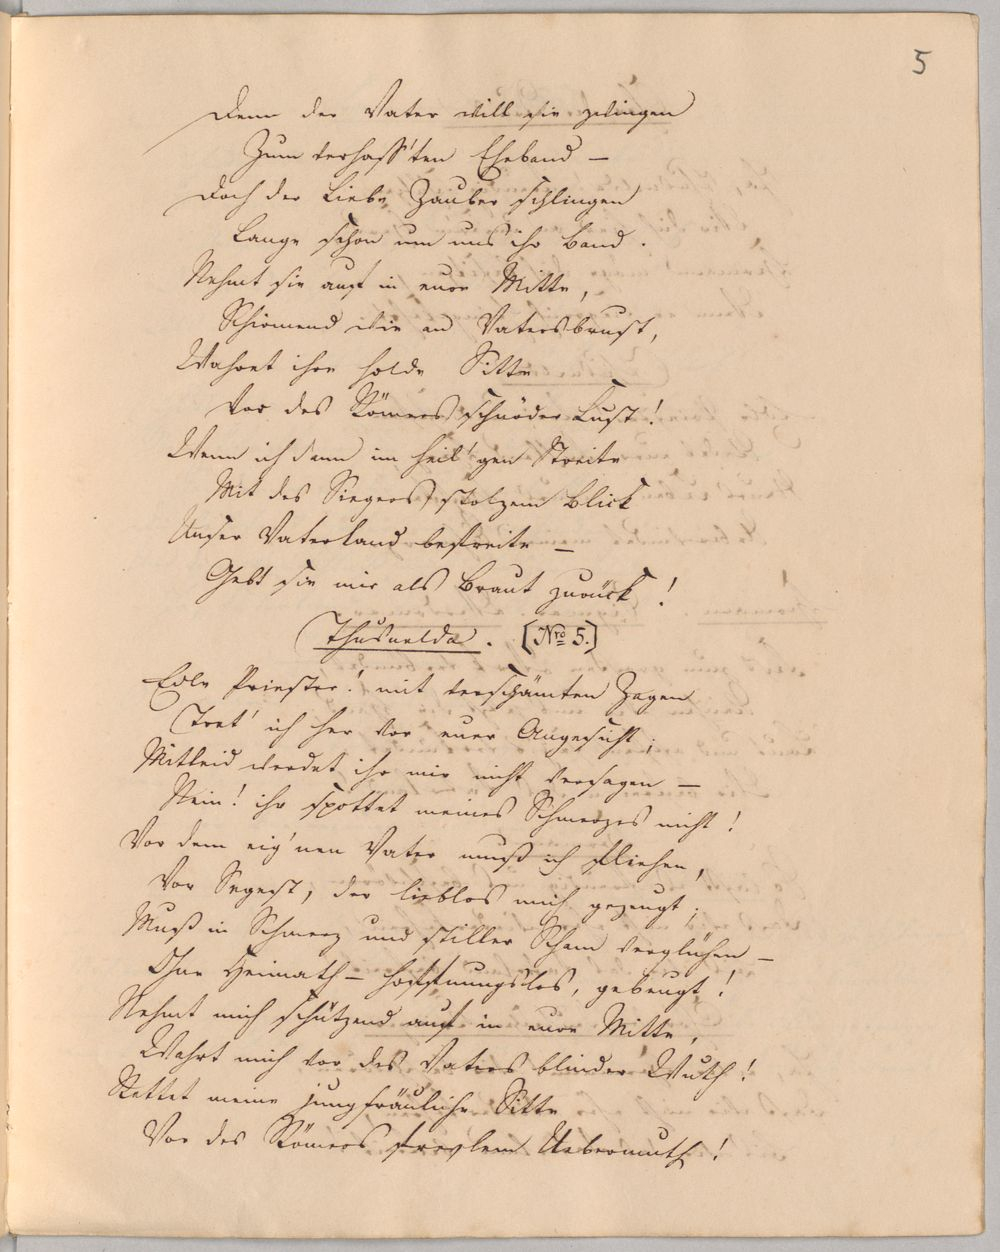 5
Denn der Vater will sie zwingen
Zum verhass'ten Eheband –
Doch der Liebe Zauber schlingen
Lange schon um uns ihr Band.
Nehmt sie auf in eure Mitte,
Schirmend wie an Vatersbrust,
Wahret ihre holde Sitte
Vor des Römers schnöder Lust!
Wenn ich dann im heil'gen Streite
Mit des Siegers stolzem Blick
Unser Vaterland befreite –
Gebt sie mir als Braut zurück!
Thusnelda. [Nro 5.]
Edle Priester! mit verschämten Zagen
Tret' ich her vor euer Angesicht;
Mitleid werdet ihr mir nicht versagen –
Nein! ihr spottet meines Schmerzes nicht!
Vor dem eig'nen Vater muß ich fliehen,
Vor Segest, der lieblos mich gezeugt;
Muß in Schmerz und stiller Scham verglühen –
Ohne Heimath – hoffnungslos, gebeugt!
Nehmt mich schützend auf in eure Mitte,
Wahrt mich vor des Vaters blinder Wuth!
Rettet meine jungfräuliche Sitte
Vor des Römers frevlem Uebermuth!